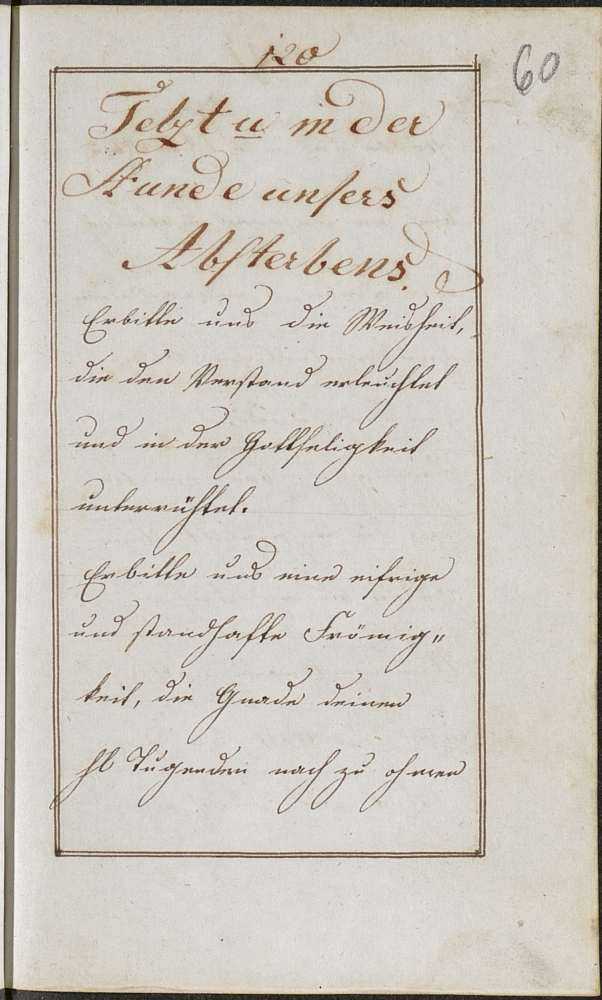 120
60
Jetzt u in der
Stunde unsers
Absterbens.
Erbitte uns die Weisheit,
die den Verstand erleuchtet
und in der Gottseligkeit
unterrühtet.
Erbitte uns eine eifrige
und standhafte Frömig„
keit, die Gnade deinen
hl Tugenden nach zu ahmen